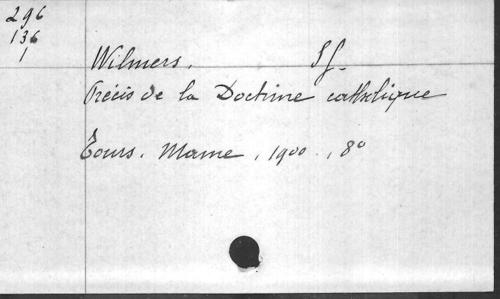 296
136
1
Wilmers. SJ.
Précis de la Doctrine catholique
Tours. Mame, 1900., 8°